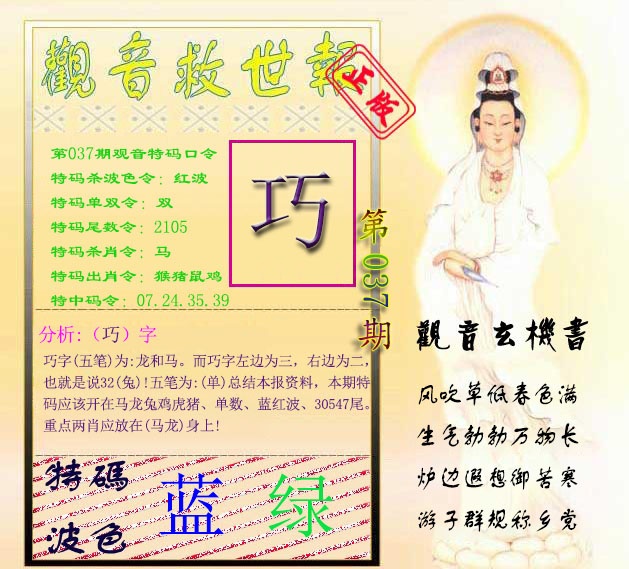 觀音救世報
正版
第037期观音特码口令
特码杀波色令：红波
特码单双令：双
特码尾数令：2105
特码杀肖令：马
特码出肖令：猴猪鼠鸡
特中码令：07.24.35.39
巧
第037期
分析:（巧）字
巧字(五笔)为:龙和马。而巧字左边为三，右边为二，
也就是说32(兔)!五笔为:(单)总结本报资料，本期特
码应该开在马龙兔鸡虎猪、单数、蓝红波、30547尾。
重点两肖应放在(马龙)身上!
特碼
波色
蓝 绿
觀音玄機書
风吹草低春色满
生气勃勃万物长
炉边遐想御苦寒
游子群规称乡党